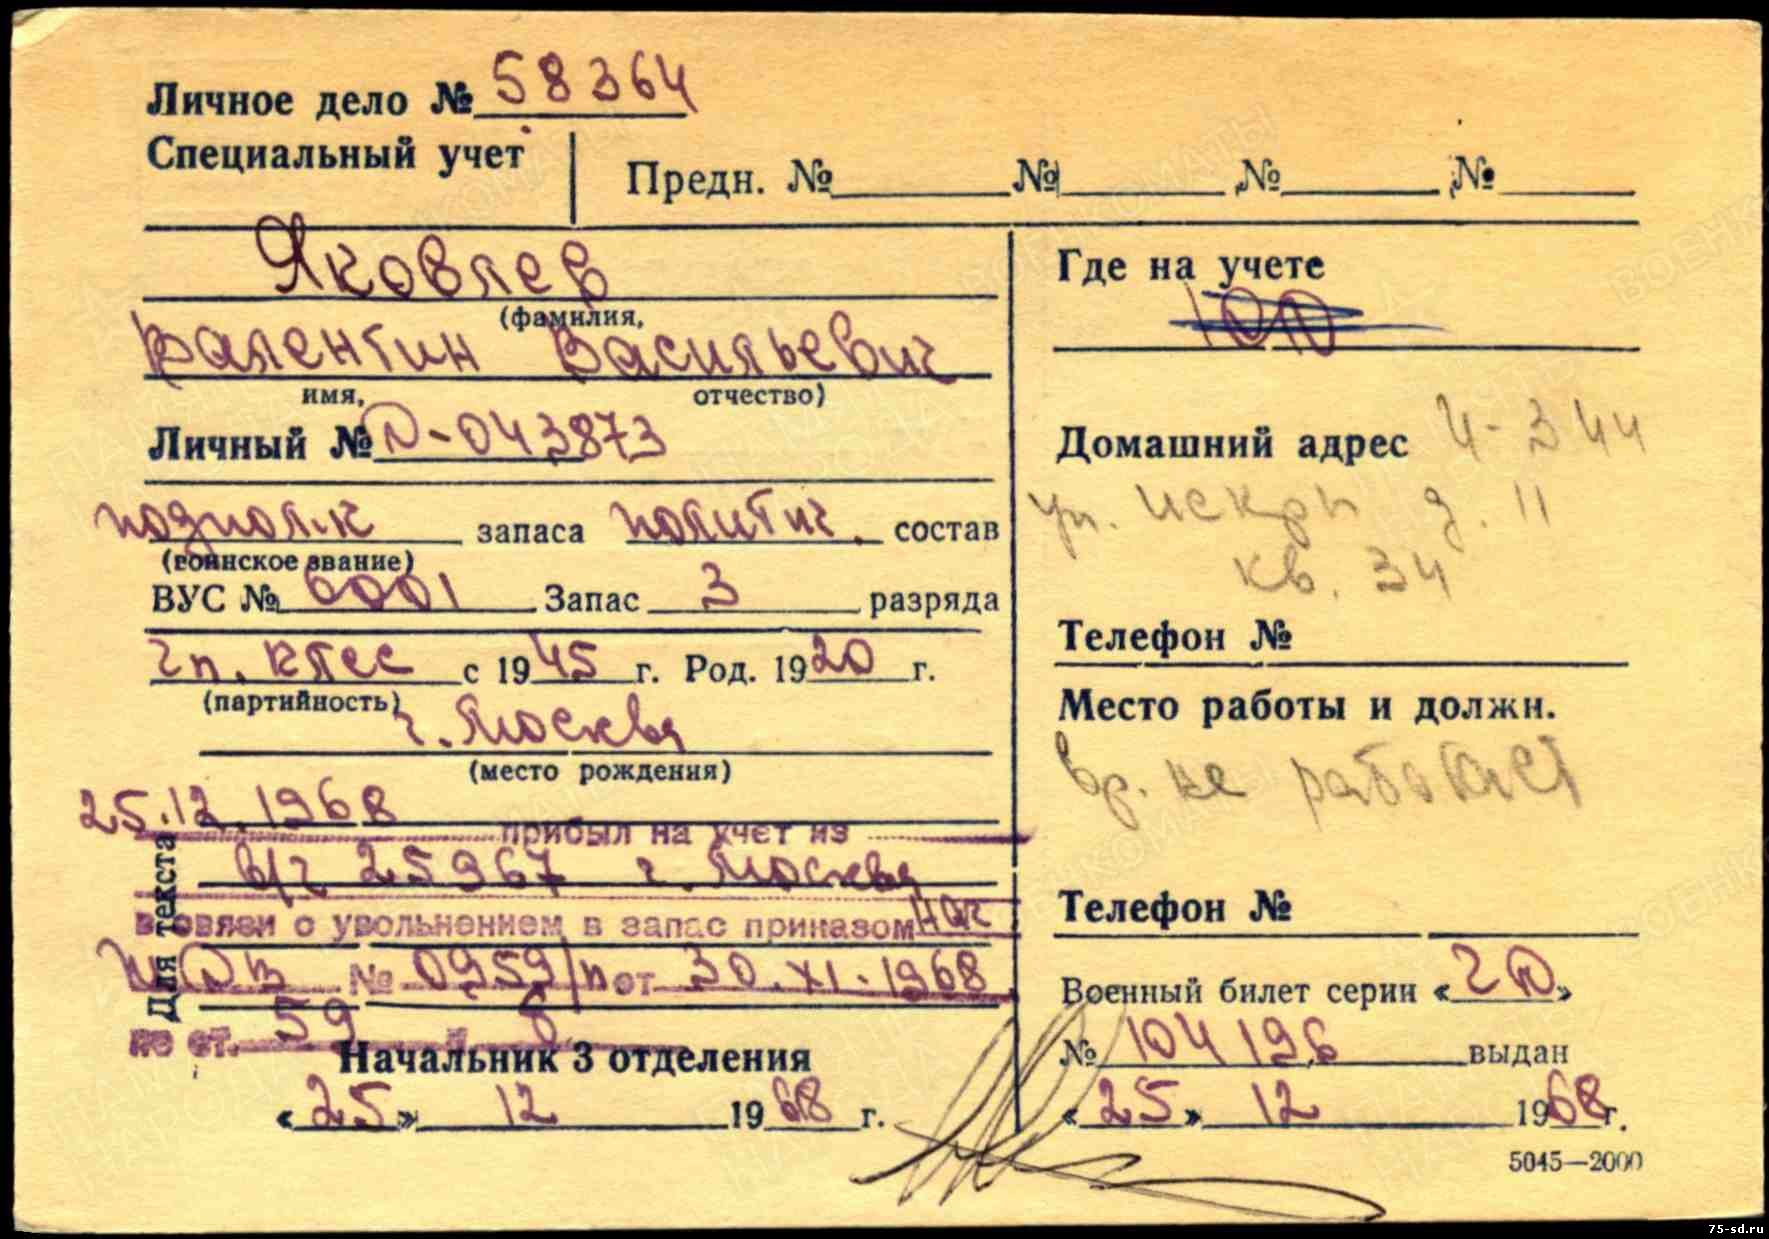 Личное дело № 58364
Специальный учет
Предн. №	№	№	№
Яковлев
(фамилия,
Валентин Васильевич
имя, отчество)
Личный № Д-043873
подполк запаса политич. состав
(воинское звание)
ВУС № 6001 Запас 3 разряда
чл. КПСС с 1945 г. Род. 1920 г.
(партийность)
г. Москва
(место рождения)
25.12.1968 прибыл на учет из
в/ч 25967 г. Москва
в связи с увольнением в запас приказом
№ 0959/п от 30.XI.1968
по ст. 59 б
Для текста
Начальник 3 отделения
«25» 12 1968 г.
Где на учете
Домашний адрес И-344
ул. Искры д. 11
кв. 34
Телефон №
Место работы и должн.
вр. не работает
Телефон №
Военный билет серии «ГД»
№ 104196 выдан
«25» 12 1968 г.
5045—2000
75-sd.ru